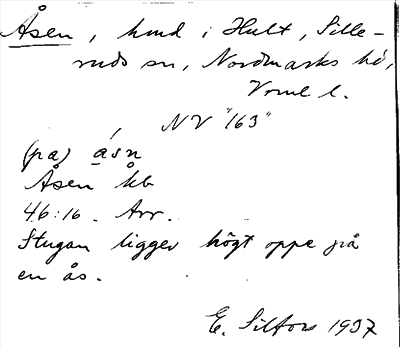 Åsen, hmd i Hult, Sille-
ruds sn, Nordmarks hd,
Vrml l.
NV "163"
(pa) åsn
Åsen kb
46:16. Arr.
Stugan ligger högt oppe på
en ås.
E. Silfors 1937